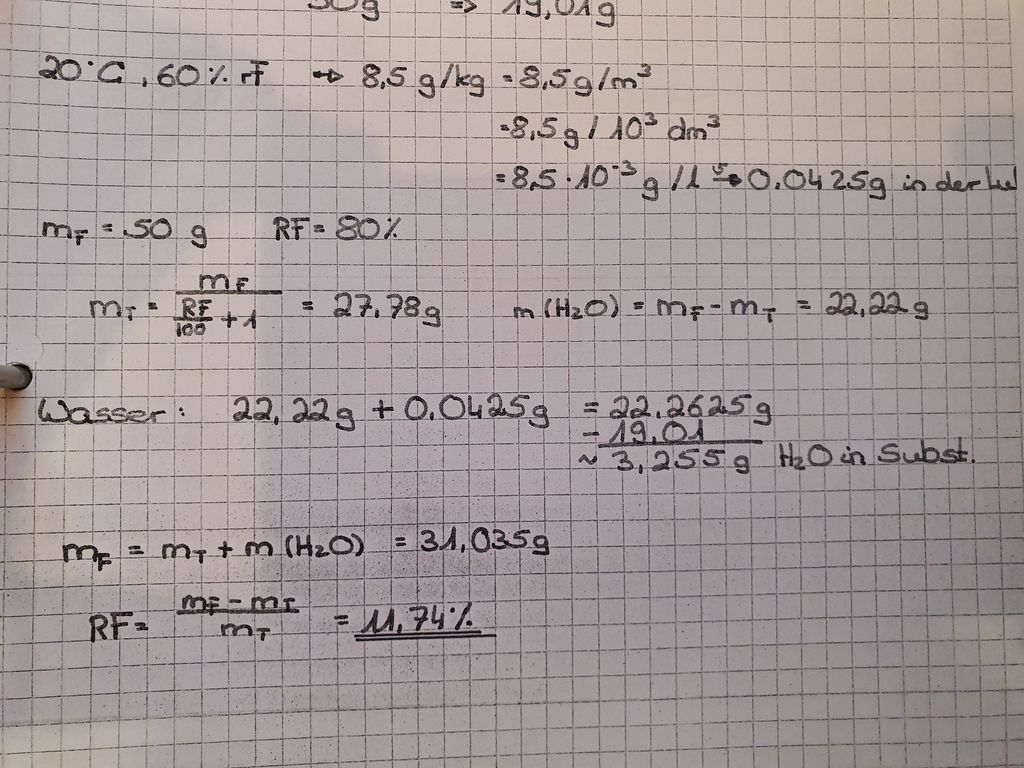 50g => 19,01g
20°C, 60% rF → 8,5 g/kg = 8,5g/m³
= 8,5g / 10³ dm³
= 8,5 · 10⁻³ g / l → 0.0425g in der
m_F = 50 g RF = 80%
m_T = m_F / (RF/100 + 1) = 27,78g m(H₂O) = m_F - m_T = 22,22g
Wasser: 22,22g + 0.0425g = 22.2625g
- 19,01
~ 3,255g H₂O in Subst.
m_F = m_T + m(H₂O) = 31,035g
RF = (m_F - m_T) / m_T = 11,74%